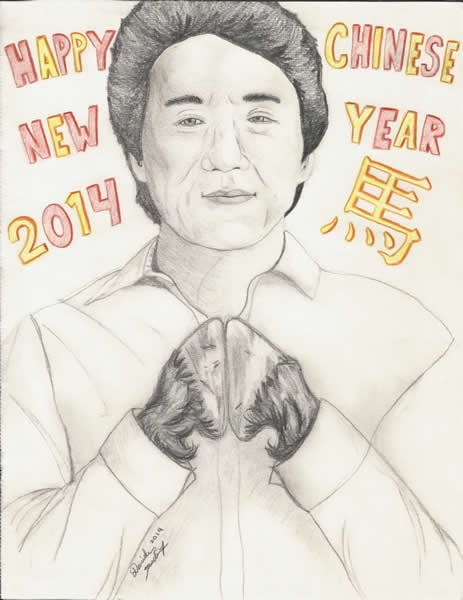 HAPPY CHINESE
NEW YEAR
2014 馬
2014